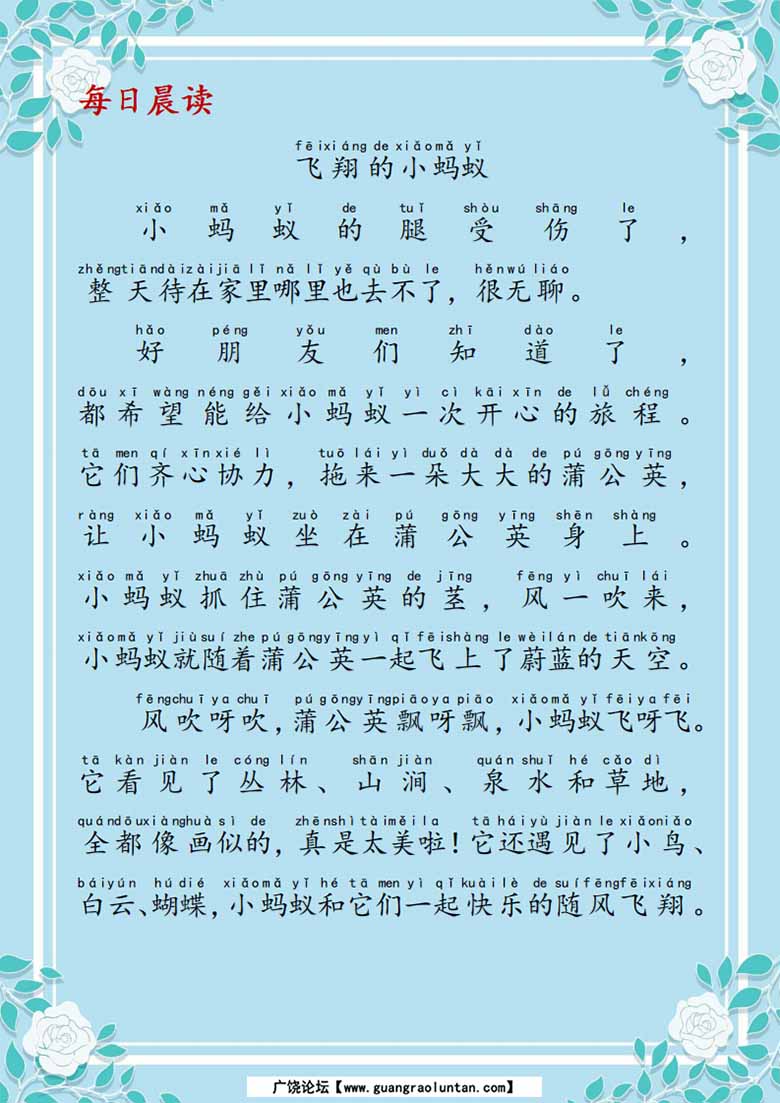 每日晨读
fēixiáng de xiǎomǎ yǐ
飞翔的小蚂蚁
xiǎo mǎ yǐ de tuǐ shòu shāng le
小蚂蚁的腿受伤了，
zhěngtiāndàizàijiā lǐ nǎ lǐ yě qù bù le hěnwú liáo
整天待在家里哪里也去不了，很无聊。
hǎo péng yǒu men zhī dào le
好朋友们知道了，
dōu xī wàng néng gěi xiǎo mǎ yǐ yì cì kāi xīn de lǚ chéng
都希望能给小蚂蚁一次开心的旅程。
tā men qí xīnxié lì tuō lái yì duǒ dà dà de pú gōngyīng
它们齐心协力，拖来一朵大大的蒲公英，
ràng xiǎo mǎ yǐ zuò zài pú gōng yīng shēn shàng
让小蚂蚁坐在蒲公英身上。
xiǎo mǎ yǐ zhuā zhù pú gōngyīng de jīng fēng yì chuī lái
小蚂蚁抓住蒲公英的茎，风一吹来，
xiǎomǎ yǐ jiùsuí zhe pú gōngyīngyì qǐ fēishàng le wèilán de tiānkōng
小蚂蚁就随着蒲公英一起飞上了蔚蓝的天空。
fēngchuī ya chuī pú gōngyīngpiāoya piāo xiǎomǎ yǐ fēiya fēi
风吹呀吹，蒲公英飘呀飘，小蚂蚁飞呀飞。
tā kàn jiàn le cóng lín shān jiàn quán shuǐ hé cǎo dì
它看见了丛林、山涧、泉水和草地，
quándōuxiànghuà sì de zhēnshìtàiměila tā háiyù jiàn le xiǎoniǎo
全都像画似的，真是太美啦！它还遇见了小鸟、
báiyún hú dié xiǎomǎ yǐ hé tā men yì qǐ kuàilè de suífēngfēixiáng
白云、蝴蝶，小蚂蚁和它们一起快乐的随风飞翔。
广饶论坛【www.guangraoluntan.com】